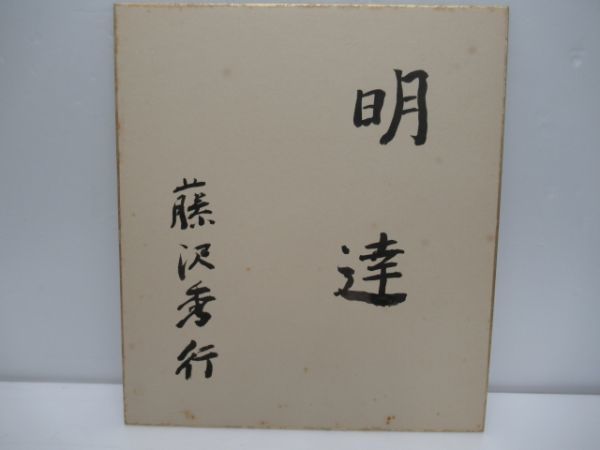 明達
藤沢秀行